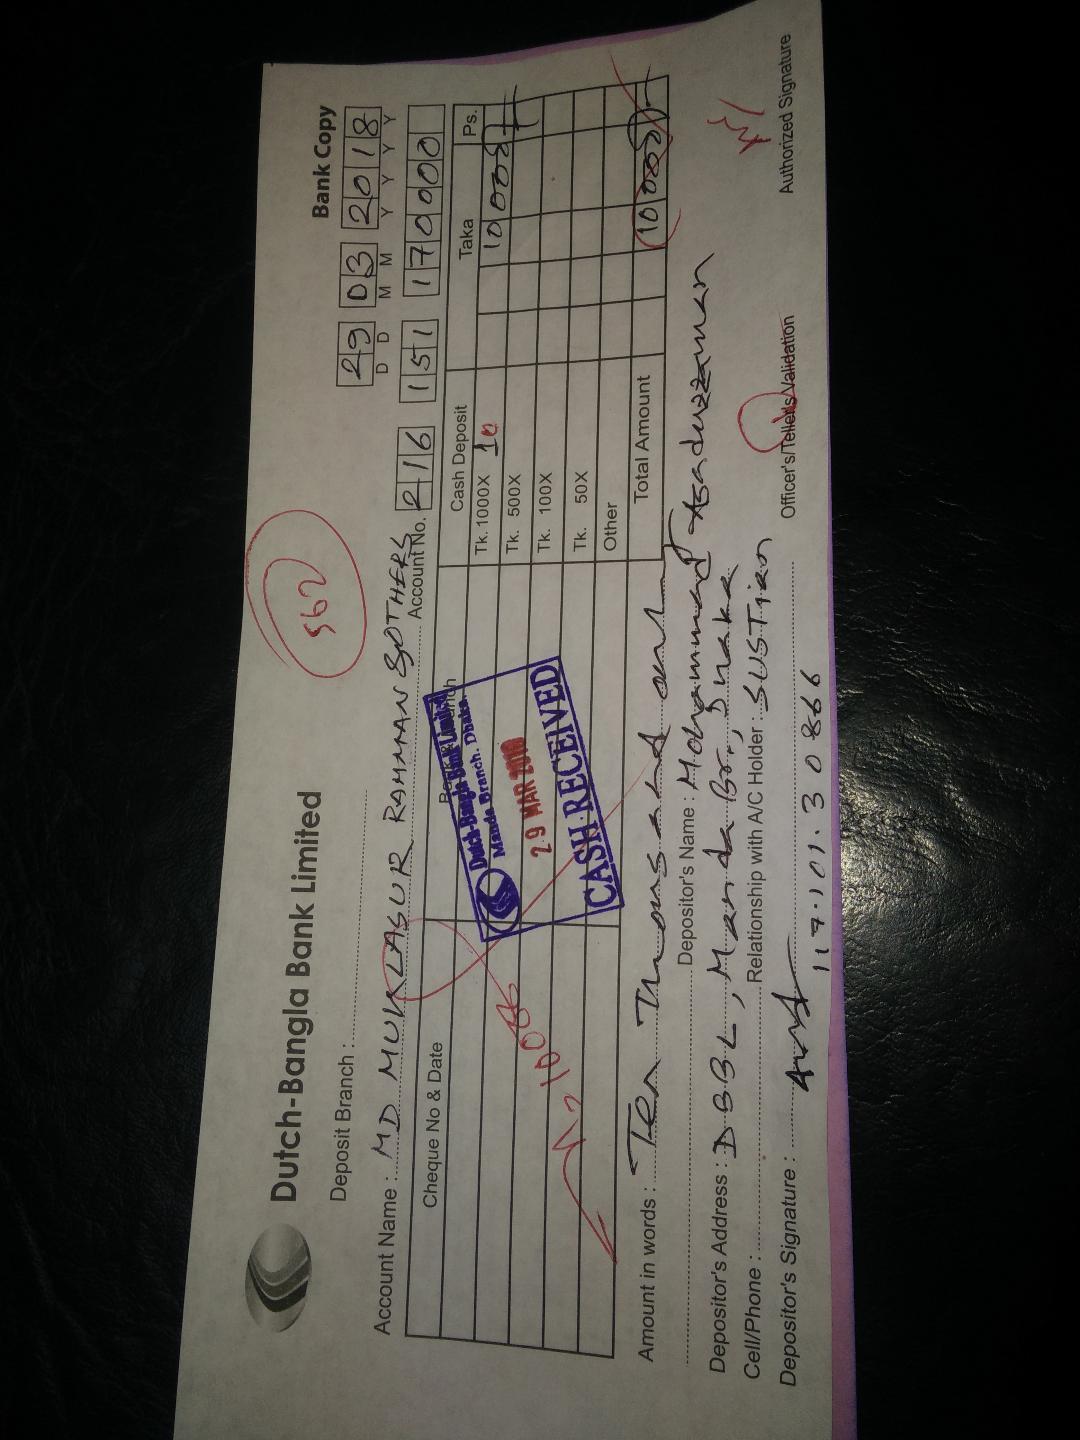 Bank Copy
Dutch-Bangla Bank Limited
562
29 03 2018
D D M M Y Y Y Y
Deposit Branch :
Account Name : MD MUKLASUR RAHMAN & OTHERS
Account No. 216 151 170000
Cheque No & Date Cash Deposit Taka Ps.
Tk. 1000X 10 10000/-
Tk. 500X
Tk. 100X
Tk. 50X
Other
Total Amount 10000/-
Dutch-Bangla Bank Limited
Manda Branch. Dhaka.
29 MAR 2018
CASH RECEIVED
Amount in words : Ten Thousand only
Depositor's Name : Mohammad Asaduzzaman
Depositor's Address : DBBL, Manda Br., Dhaka
Cell/Phone : Relationship with A/C Holder : SUSTian
Depositor's Signature : Officer's/Teller's Validation Authorized Signature
117.101.30866